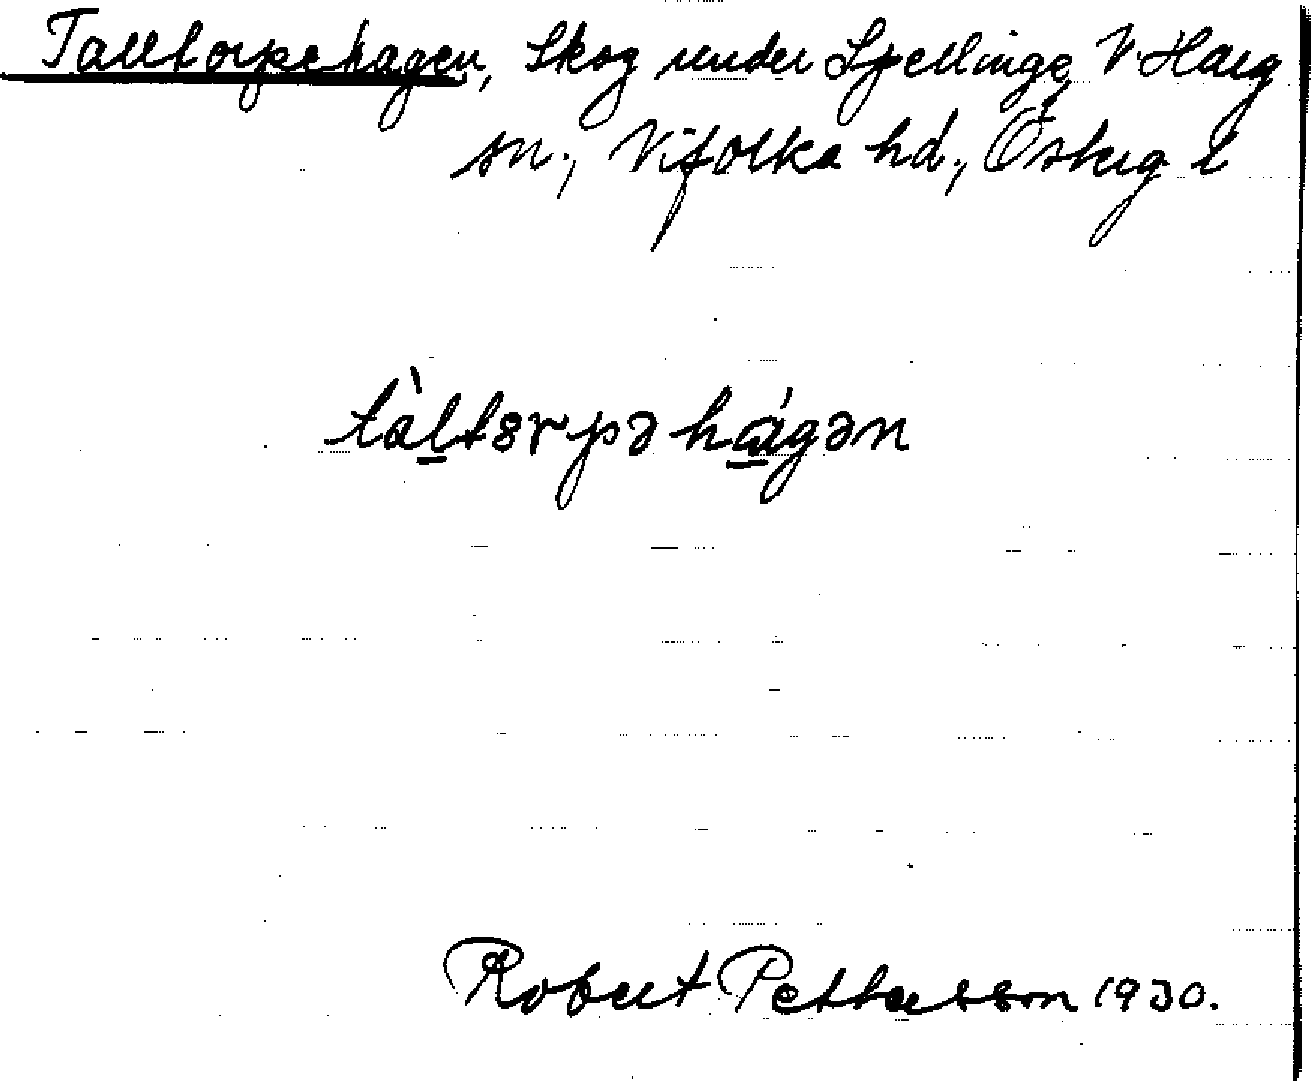 Talltorpehagen, Skog under Spellinge, V Harg
sn., Vifolka hd., Östergl
tàl̠tɞrpə há̠gən
Robert Pettersson 1930.